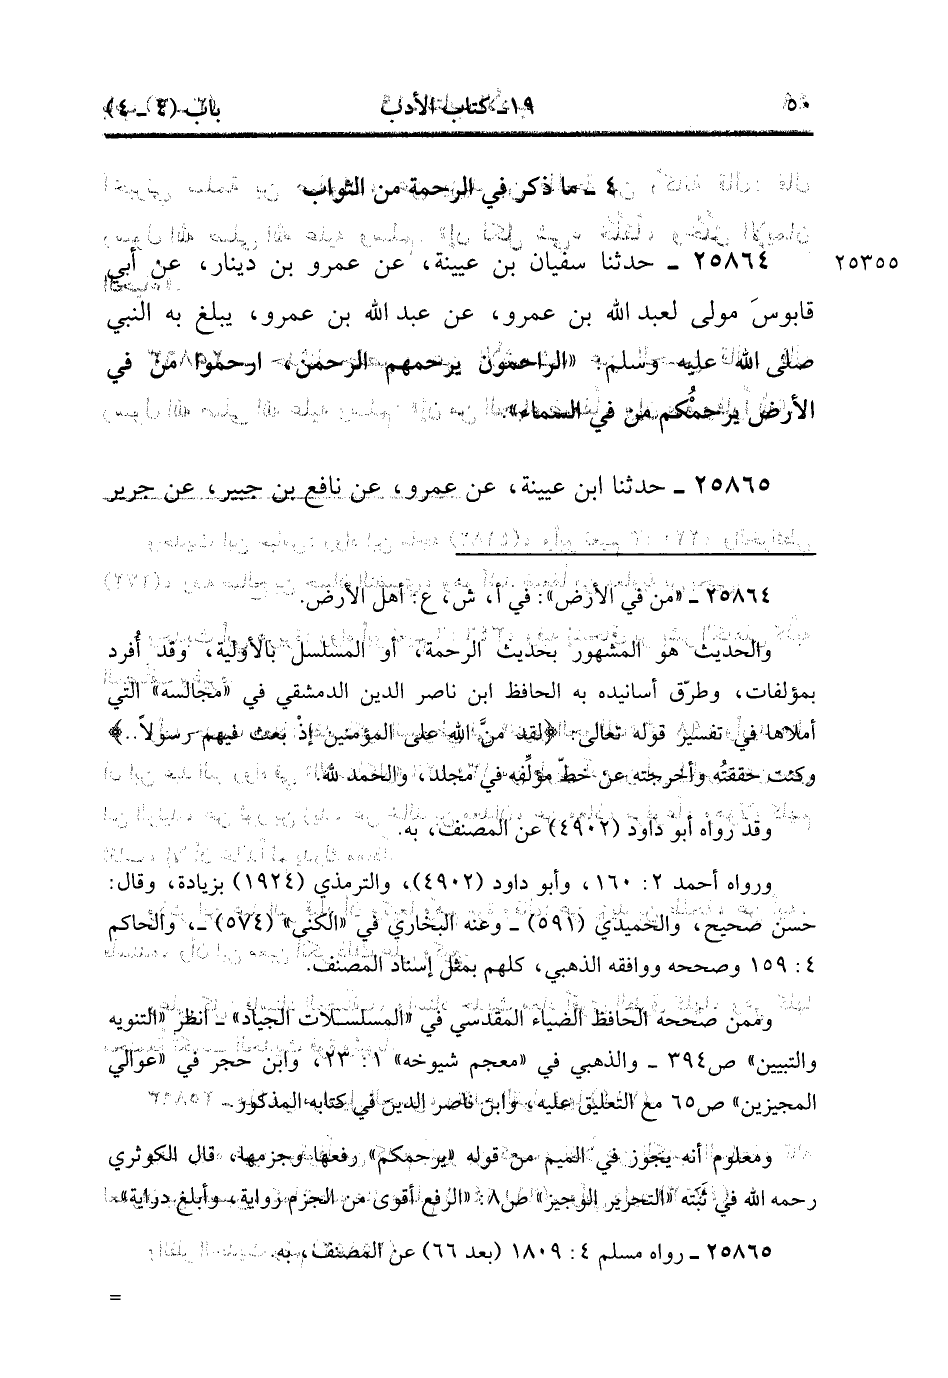 ٥٠ ١٩ - كتاب الأدب باب (٣ - ٤)
٤ - ما ذكر في الرحمة من الثواب
٢٥٣٥٥ ٢٥٨٦٤ - حدثنا سفيان بن عيينة، عن عمرو بن دينار، عن أبي
قابوسَ مولى لعبد الله بن عمرو، عن عبد الله بن عمرو، يبلغ به النبي
صلى الله عليه وسلم: «الراحمون يرحمهم الرحمن، ارحموا مَن في
الأرض يرحمُكم من في السماء».
٢٥٨٦٥ - حدثنا ابن عيينة، عن عمرو، عن نافع بن جبير، عن جرير
٢٥٨٦٤ - «من في الأرض»: في أ، ش، ع: أهل الأرض.
والحديث هو المشهور بحديث الرحمة، أو المسلسل بالأولية، وقد أُفرد
بمؤلفات، وطرّق أسانيده به الحافظ ابن ناصر الدين الدمشقي في «مجالسه» التي
أملاها في تفسير قوله تعالى: ﴿لقد منَّ الله على المؤمنين إذْ بعث فيهم رسولاً..﴾
وكنت حققتُه وأخرجته عن خطّ مؤلِّفه في مجلد، والحمد لله.
وقد رواه أبو داود (٤٩٠٢) عن المصنف، به.
ورواه أحمد ٢: ١٦٠، وأبو داود (٤٩٠٢)، والترمذي (١٩٢٤) بزيادة، وقال:
حسن صحيح، والحميدي (٥٩١) - وعنه البخاري في «الكنى» (٥٧٤) -، والحاكم
٤: ١٥٩ وصححه ووافقه الذهبي، كلهم بمثل إسناد المصنف.
وممن صححه الحافظ الضياء المقدسي في «المسلسلات الجياد» - انظر «التنويه
والتبيين» ص٣٩٤ - والذهبي في «معجم شيوخه» ١: ٢٣، وابن حجر في «عوالي
المجيزين» ص٦٥ مع التعليق عليه، وابن ناصر الدين في كتابه المذكور.
ومعلوم أنه يجوز في الميم من قوله «يرحمكم» رفعها وجزمها، قال الكوثري
رحمه الله في ثَبَته «التحرير الوجيز» ص٨: «الرفع أقوى من الجزم رواية، وأبلغ دراية».
٢٥٨٦٥ - رواه مسلم ٤: ١٨٠٩ (بعد ٦٦) عن المصنف، به.
=